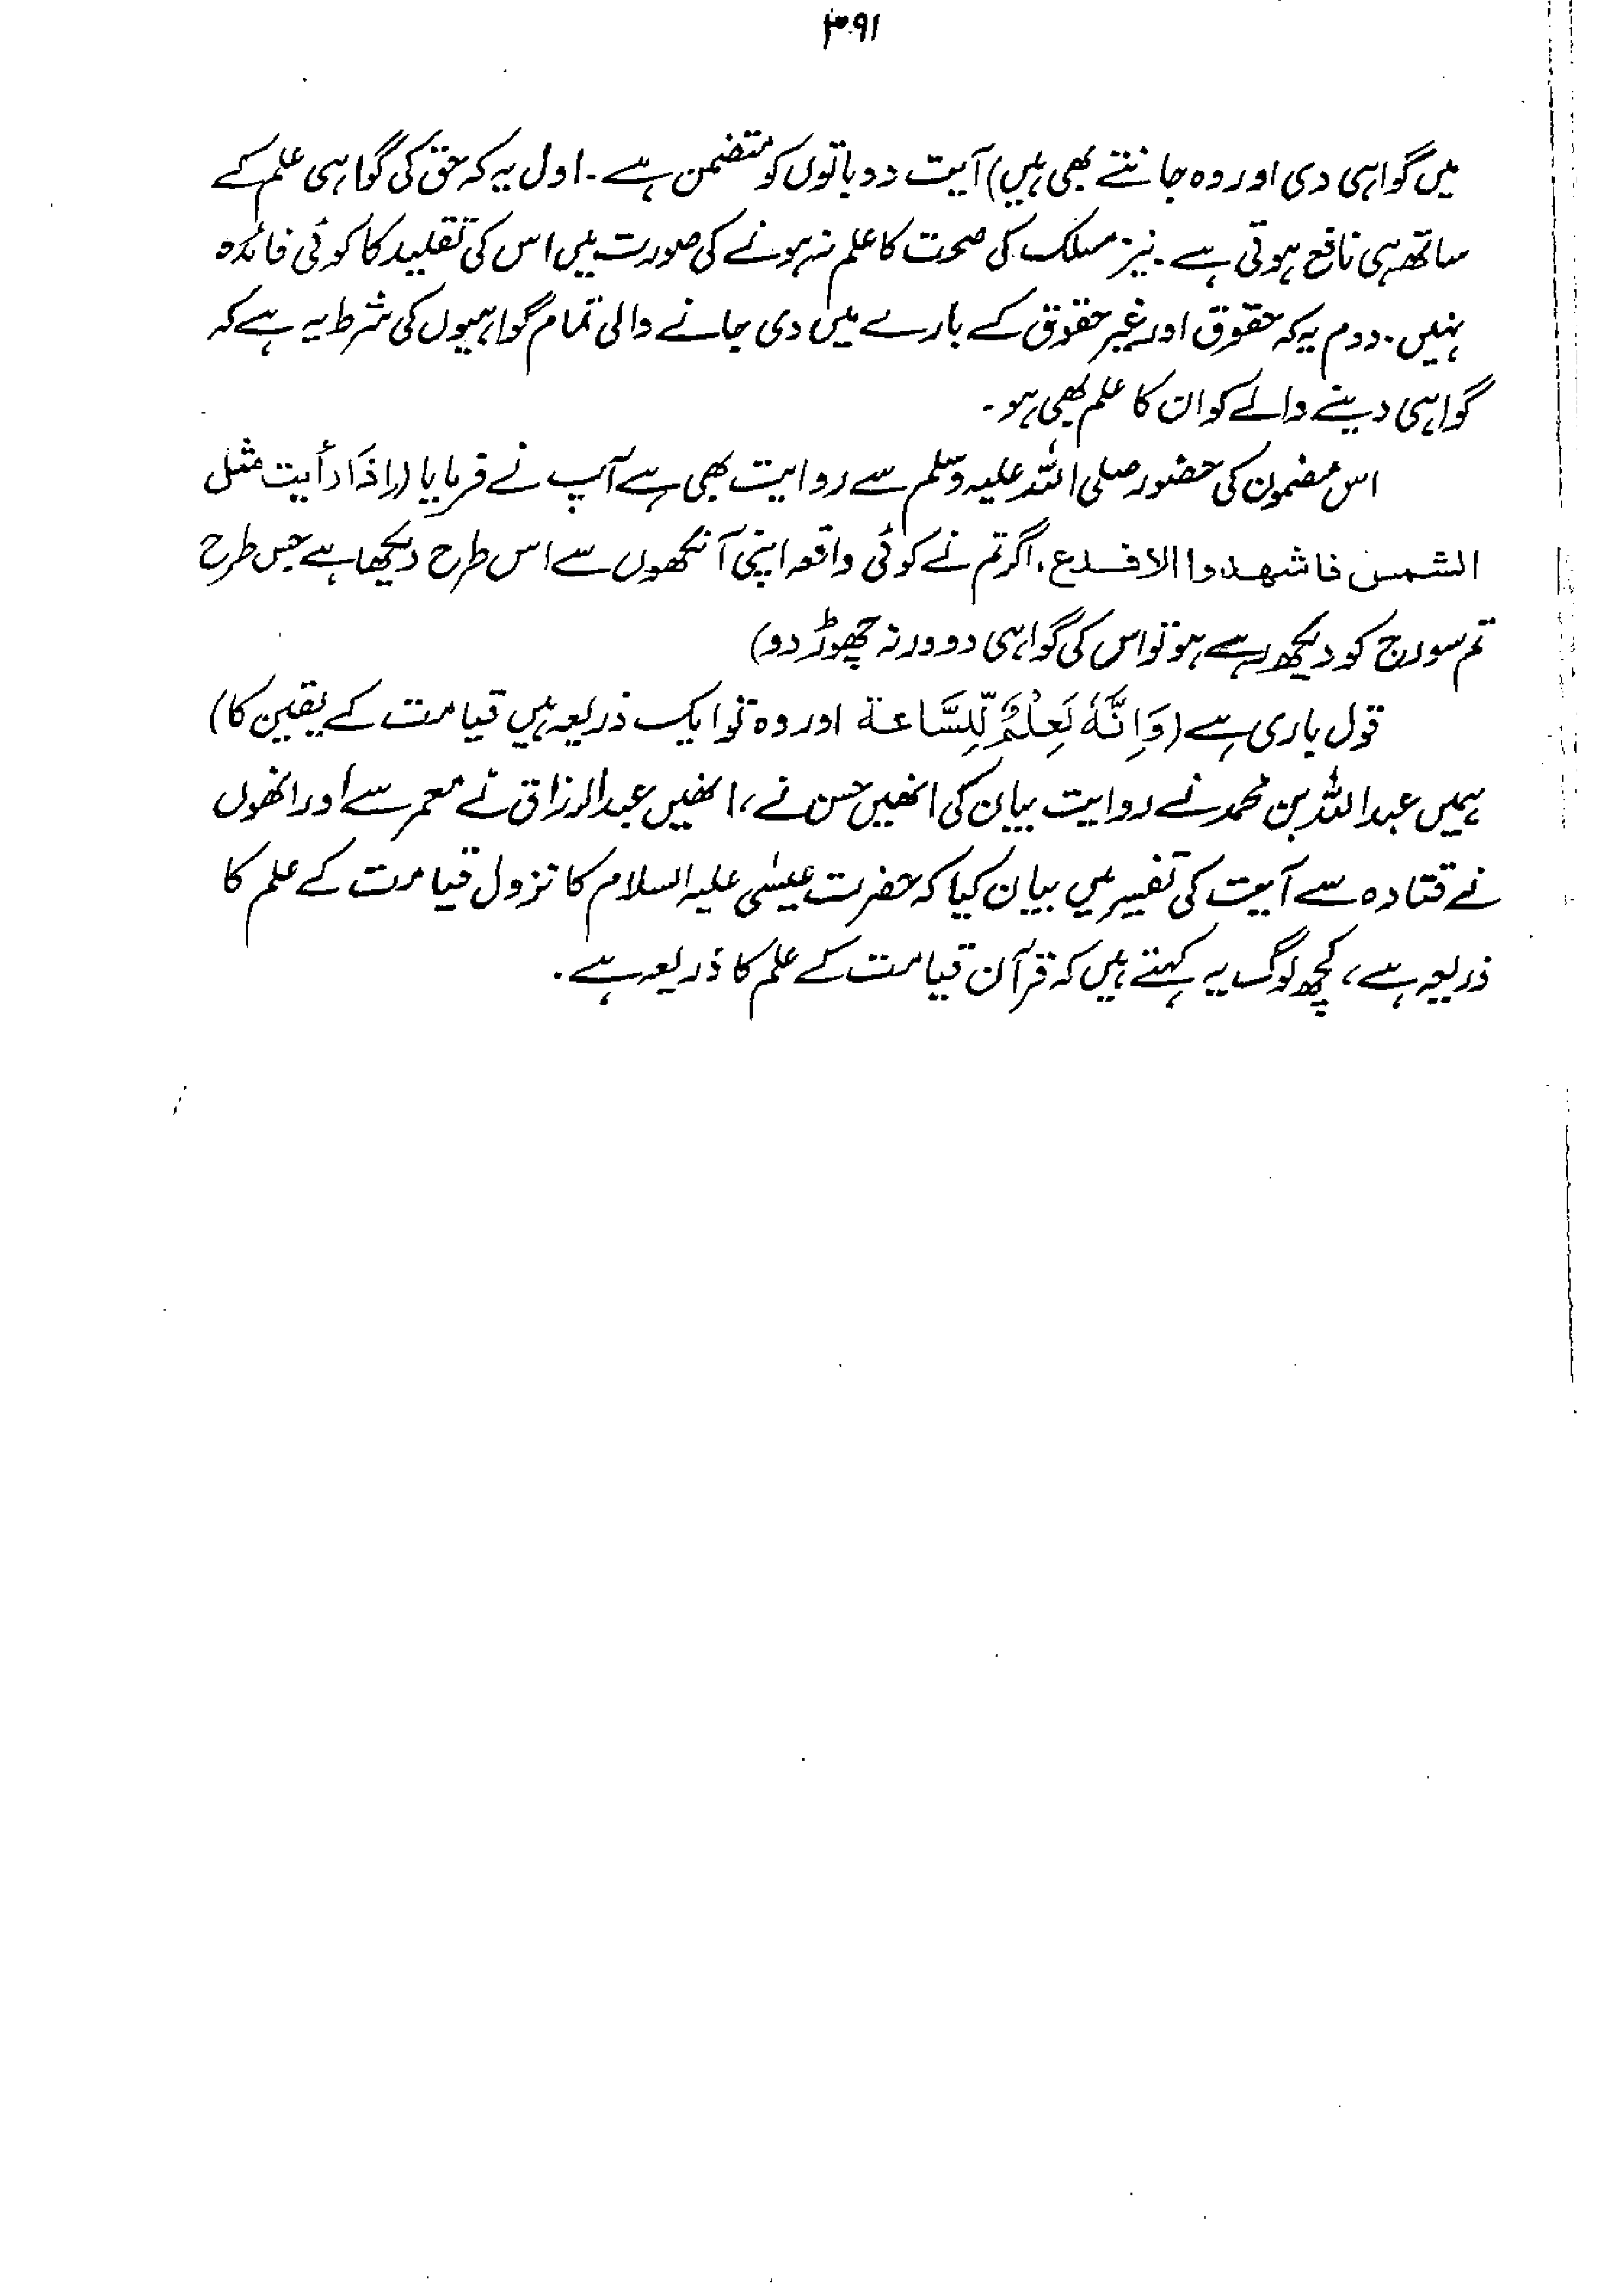 ۳۹۱
میں گواہی دی اور وہ جانتے بھی ہیں) آیت دو باتوں کو متضمن ہے۔ اول یہ کہ حق کی گواہی علم کے
ساتھ ہی نافع ہوتی ہے۔ نیز مسلک کی صحت کا علم نہ ہونے کی صورت میں اس کی تقلید کا کوئی فائدہ
نہیں۔ دوم یہ کہ حقوق اور غیر حقوق کے بارے میں دی جانے والی تمام گواہیوں کی شرط یہ ہے کہ
گواہی دینے والے کو ان کا علم بھی ہو۔
اس مضمون کی حضور صلی اللہ علیہ وسلم سے روایت بھی ہے آپ نے فرمایا (اذا رأیت مثل
الشمس فاشھدوا الا فدع، اگر تم نے کوئی واقعہ اپنی آنکھوں سے اس طرح دیکھا ہے جس طرح
تم سورج کو دیکھ رہے ہو تو اس کی گواہی دو ورنہ چھوڑ دو)
قول باری ہے (وَاِنَّہٗ لَعِلْمٌ لِّلسَّاعة اور وہ تو ایک ذریعہ ہیں قیامت کے یقین کا)
ہمیں عبد اللہ بن محمد نے روایت بیان کی انھیں حسن نے، انھیں عبدالرزاق نے معمر سے اور انھوں
نے قتادہ سے آیت کی تفسیر میں بیان کیا کہ حضرت عیسٰی علیہ السلام کا نزول قیامت کے علم کا
ذریعہ ہے، کچھ لوگ یہ کہتے ہیں کہ قرآن قیامت کے علم کا ذریعہ ہے۔